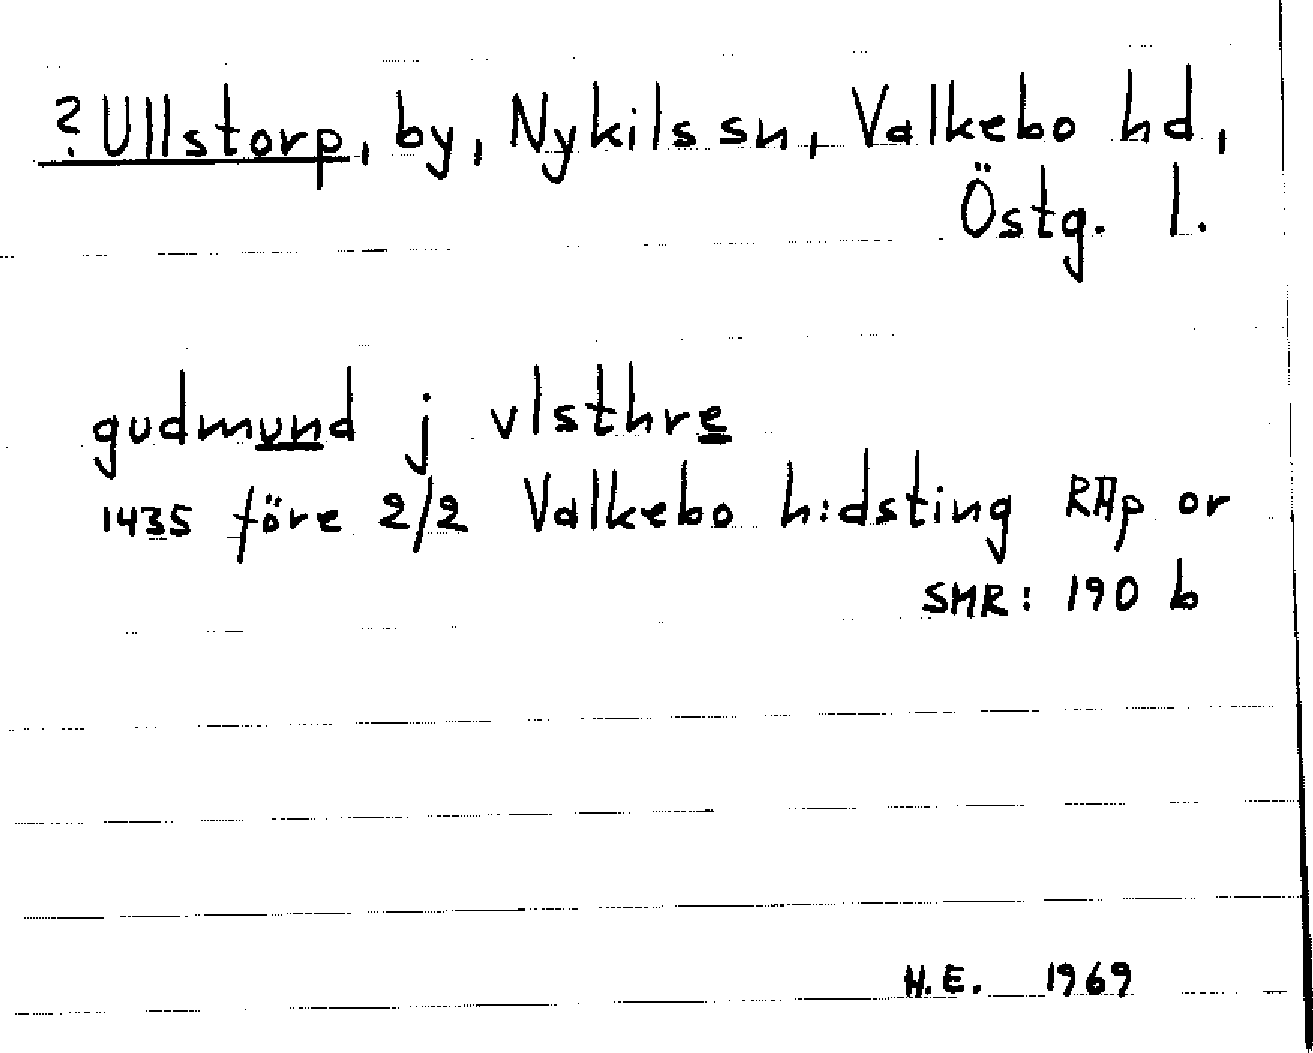 ?Ullstorp, by, Nykils sn, Valkebo hd,
Östg. l.
gudmund j vlsthre
1435 före 2/2 Valkebo h:dsting RAp or
SMR: 190 b
H.E. 1969